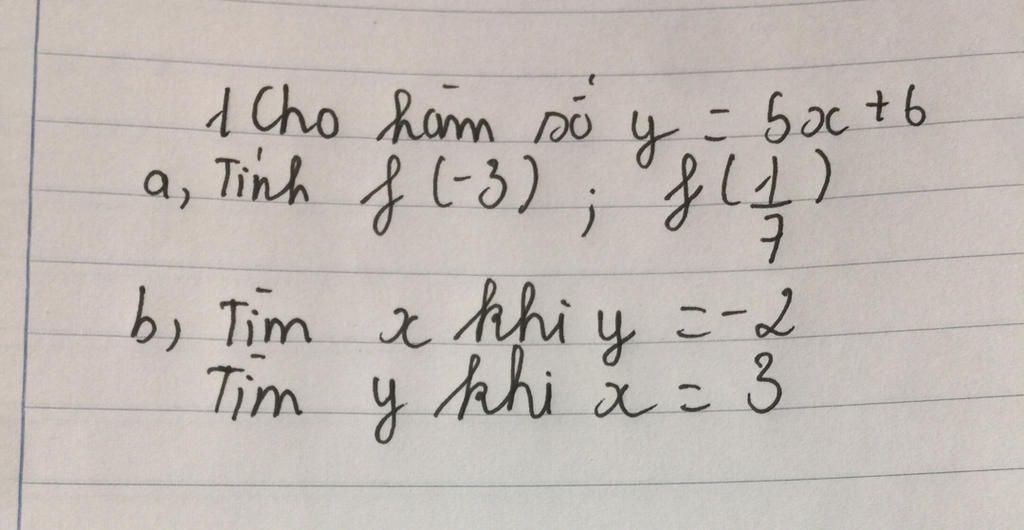 1 Cho hàm số y = 5x + 6
a, Tính f(-3) ; f(1/7)
b, Tìm x khi y = -2
Tìm y khi x = 3